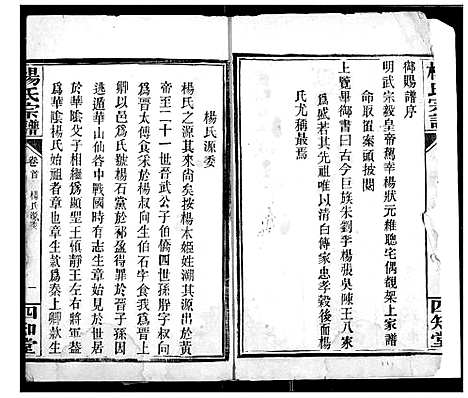 御賜譜序
明武宗毅皇帝駕幸楊狀元維聰宅偶覩架上家譜
命取置案頭披閱
上覽畢御書曰古今巨族朱劉李楊張吳陳王八家
而最盛者惟江右爲然以清白傳家忠孝榖後而楊
氏尤稱最焉
楊氏宗譜
四知堂
楊氏源委
楊氏之源其來尚矣按楊本姬姓溯其源出於黃
帝至二十一世晉武公子伯僑四世孫肸字叔向
爲晉太傅食采於楊叔向生伯石字食我以其地
爲華陰楊氏始祖者章也生章生款爲秦上卿款生
爲氏以邑爲氏雖楊石黨於祁盈得罪於晉子孫因
逃遁華山仙谷中戰國時有志生章始見於世居
於華陰父子相繼爲顯聖王頓靜王左右輔弼其
楊氏宗譜
卷首
楊氏源委
一
四知堂